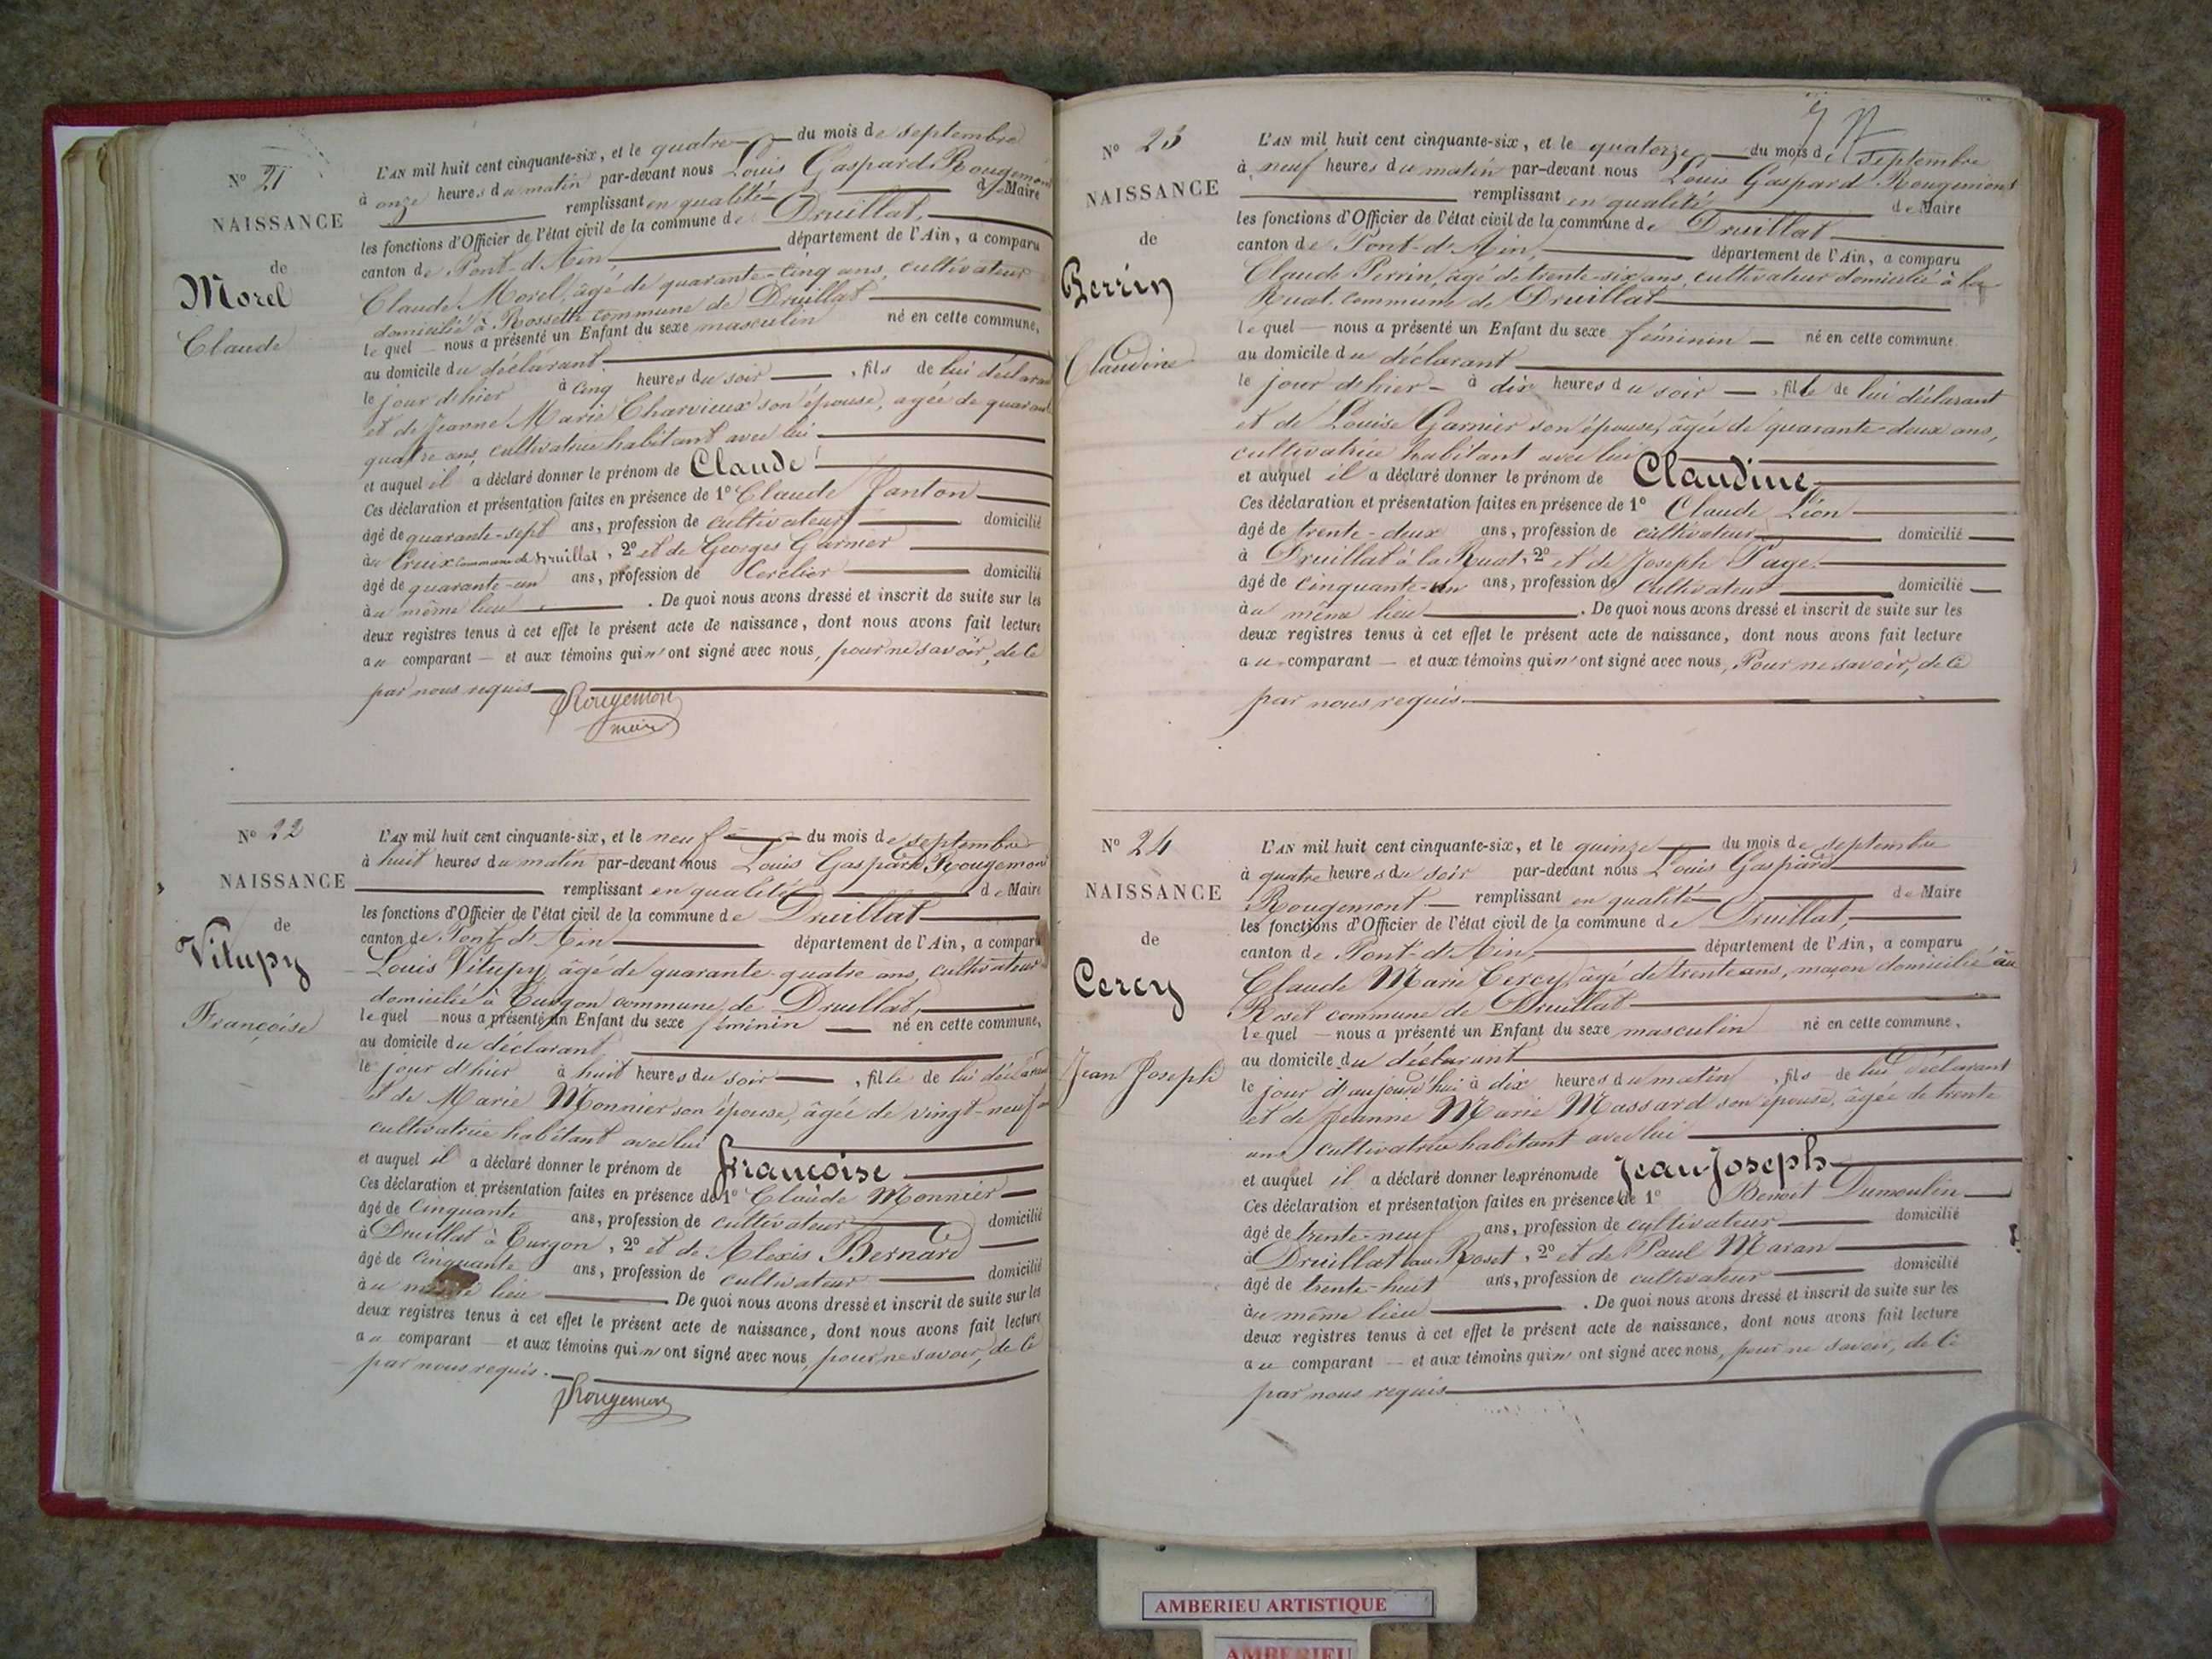 N° 21
NAISSANCE
de
Morel
Claude
L'AN mil huit cent cinquante-six, et le quatre du mois de septembre
à onze heures du matin par-devant nous Louis Gaspard Rougemont
remplissant en qualité de Maire
les fonctions d'Officier de l'état civil de la commune de Druillat,
canton de Pont-d'Ain, département de l'Ain, a comparu
Claude Morel, âgé de quarante-cinq ans, cultivateur
domicilié à Rossette commune de Druillat
lequel nous a présenté un Enfant du sexe masculin né en cette commune,
au domicile du déclarant
le jour d'hier à cinq heures du soir, fils de lui déclarant
et de Jeanne Marie Charvieux son épouse, agée de quarante
quatre ans, cultivatrice habitant avec lui
et auquel il a déclaré donner le prénom de Claude
Ces déclaration et présentation faites en présence de 1° Claude Janton
âgé de quarante-sept ans, profession de cultivateur domicilié
à la Croix commune de Druillat, 2° et de Georges Garnier
âgé de quarante-un ans, profession de Cerclier domicilié
au même lieu. De quoi nous avons dressé et inscrit de suite sur les
deux registres tenus à cet effet le présent acte de naissance, dont nous avons fait lecture
au comparant et aux témoins qui n'ont signé avec nous, pour ne savoir, de ce
par nous requis
Rougemont
maire
N° 22
NAISSANCE
de
Vitupy
Françoise
L'AN mil huit cent cinquante-six, et le neuf du mois de septembre
à huit heures du matin par-devant nous Louis Gaspard Rougemont
remplissant en qualité de Maire
les fonctions d'Officier de l'état civil de la commune de Druillat
canton de Pont-d'Ain département de l'Ain, a comparu
Louis Vitupy, âgé de quarante-quatre ans, cultivateur
domicilié à Turgon commune de Druillat,
lequel nous a présenté un Enfant du sexe féminin né en cette commune,
au domicile du déclarant,
le jour d'hier à huit heures du soir, fille de lui déclarant
et de Marie Monnier son épouse, âgée de vingt-neuf
cultivatrice habitant avec lui
et auquel il a déclaré donner le prénom de Françoise
Ces déclaration et présentation faites en présence de 1° Claude Monnier
âgé de Cinquante ans, profession de cultivateur domicilié
à Druillat à Turgon, 2° et de Alexis Bernard
âgé de Cinquante ans, profession de cultivateur domicilié
au même lieu De quoi nous avons dressé et inscrit de suite sur les
deux registres tenus à cet effet le présent acte de naissance, dont nous avons fait lecture
au comparant et aux témoins qui n'ont signé avec nous, pour ne savoir, de ce
par nous requis.
Rougemont
N° 23
NAISSANCE
de
Perrin
Claudine
L'AN mil huit cent cinquante-six, et le quatorze du mois de septembre
à neuf heures du matin par-devant nous Louis Gaspard Rougemont
remplissant en qualité de Maire
les fonctions d'Officier de l'état civil de la commune de Druillat
canton de Pont-d'Ain, département de l'Ain, a comparu
Claude Perrin, âgé de trente-six ans, cultivateur domicilié à la
Ruat, commune de Druillat
lequel nous a présenté un Enfant du sexe féminin né en cette commune.
au domicile du déclarant
le jour d'hier à dix heures du soir, fille de lui déclarant
et de Louise Garnier son épouse, âgée de quarante-deux ans,
cultivatrice habitant avec lui
et auquel il a déclaré donner le prénom de Claudine
Ces déclaration et présentation faites en présence de 1° Claude Léon
âgé de trente-deux ans, profession de cultivateur domicilié
à Druillat à la Ruat, 2° et de Joseph Page
âgé de cinquante-un ans, profession de Cultivateur domicilié
au même lieu. De quoi nous avons dressé et inscrit de suite sur les
deux registres tenus à cet effet le présent acte de naissance, dont nous avons fait lecture
au comparant et aux témoins qui n'ont signé avec nous, Pour ne savoir, de ce
par nous requis
N° 24
NAISSANCE
de
Cercy
Jean Joseph
L'AN mil huit cent cinquante-six, et le quinze du mois de septembre
à quatre heures du soir par-devant nous Louis Gaspard
Rougemont remplissant en qualité de Maire
les fonctions d'Officier de l'état civil de la commune de Druillat,
canton de Pont-d'Ain, département de l'Ain, a comparu
Claude Marie Cercy, âgé de trente ans, maçon domicilié au
Roset commune de Druillat
lequel nous a présenté un Enfant du sexe masculin né en cette commune,
au domicile du déclarant
le jour d'aujourd'hui à dix heures du matin, fils de lui déclarant
et de Jeanne Marie Massard son épouse, âgée de trente
ans, cultivatrice habitant avec lui
et auquel il a déclaré donner les prénoms de Jean Joseph
Ces déclaration et présentation faites en présence de 1° Benoit Dumoulin
âgé de trente-neuf ans, profession de cultivateur domicilié
à Druillat au Roset, 2° et de Paul Maran
âgé de trente-huit ans, profession de cultivateur domicilié
au même lieu. De quoi nous avons dressé et inscrit de suite sur les
deux registres tenus à cet effet le présent acte de naissance, dont nous avons fait lecture
au comparant et aux témoins qui n'ont signé avec nous, pour ne savoir, de ce
par nous requis
AMBERIEU ARTISTIQUE
AMBERIEU